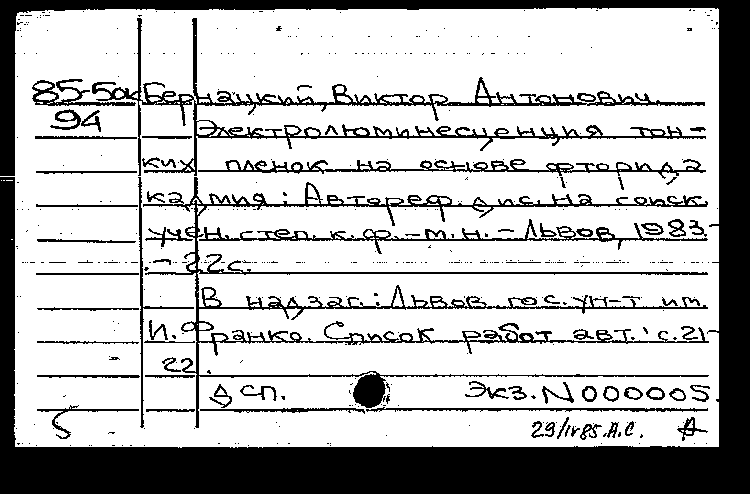 85-5ак Бернацкий, Виктор Антонович.
94 Электролюминесценция тон-
ких пленок на основе фторида
кадмия : Автореф. дис. на соиск.
учен. степ. к. ф.-м. н. - Львов, 1983.
- 22 с.
В надзаг.: Львов гос. ун-т им.
И. Франко. Список работ авт.: с. 21-
22.
ДСП. Экз. N 000005.
5 29/IV 85. А.С.